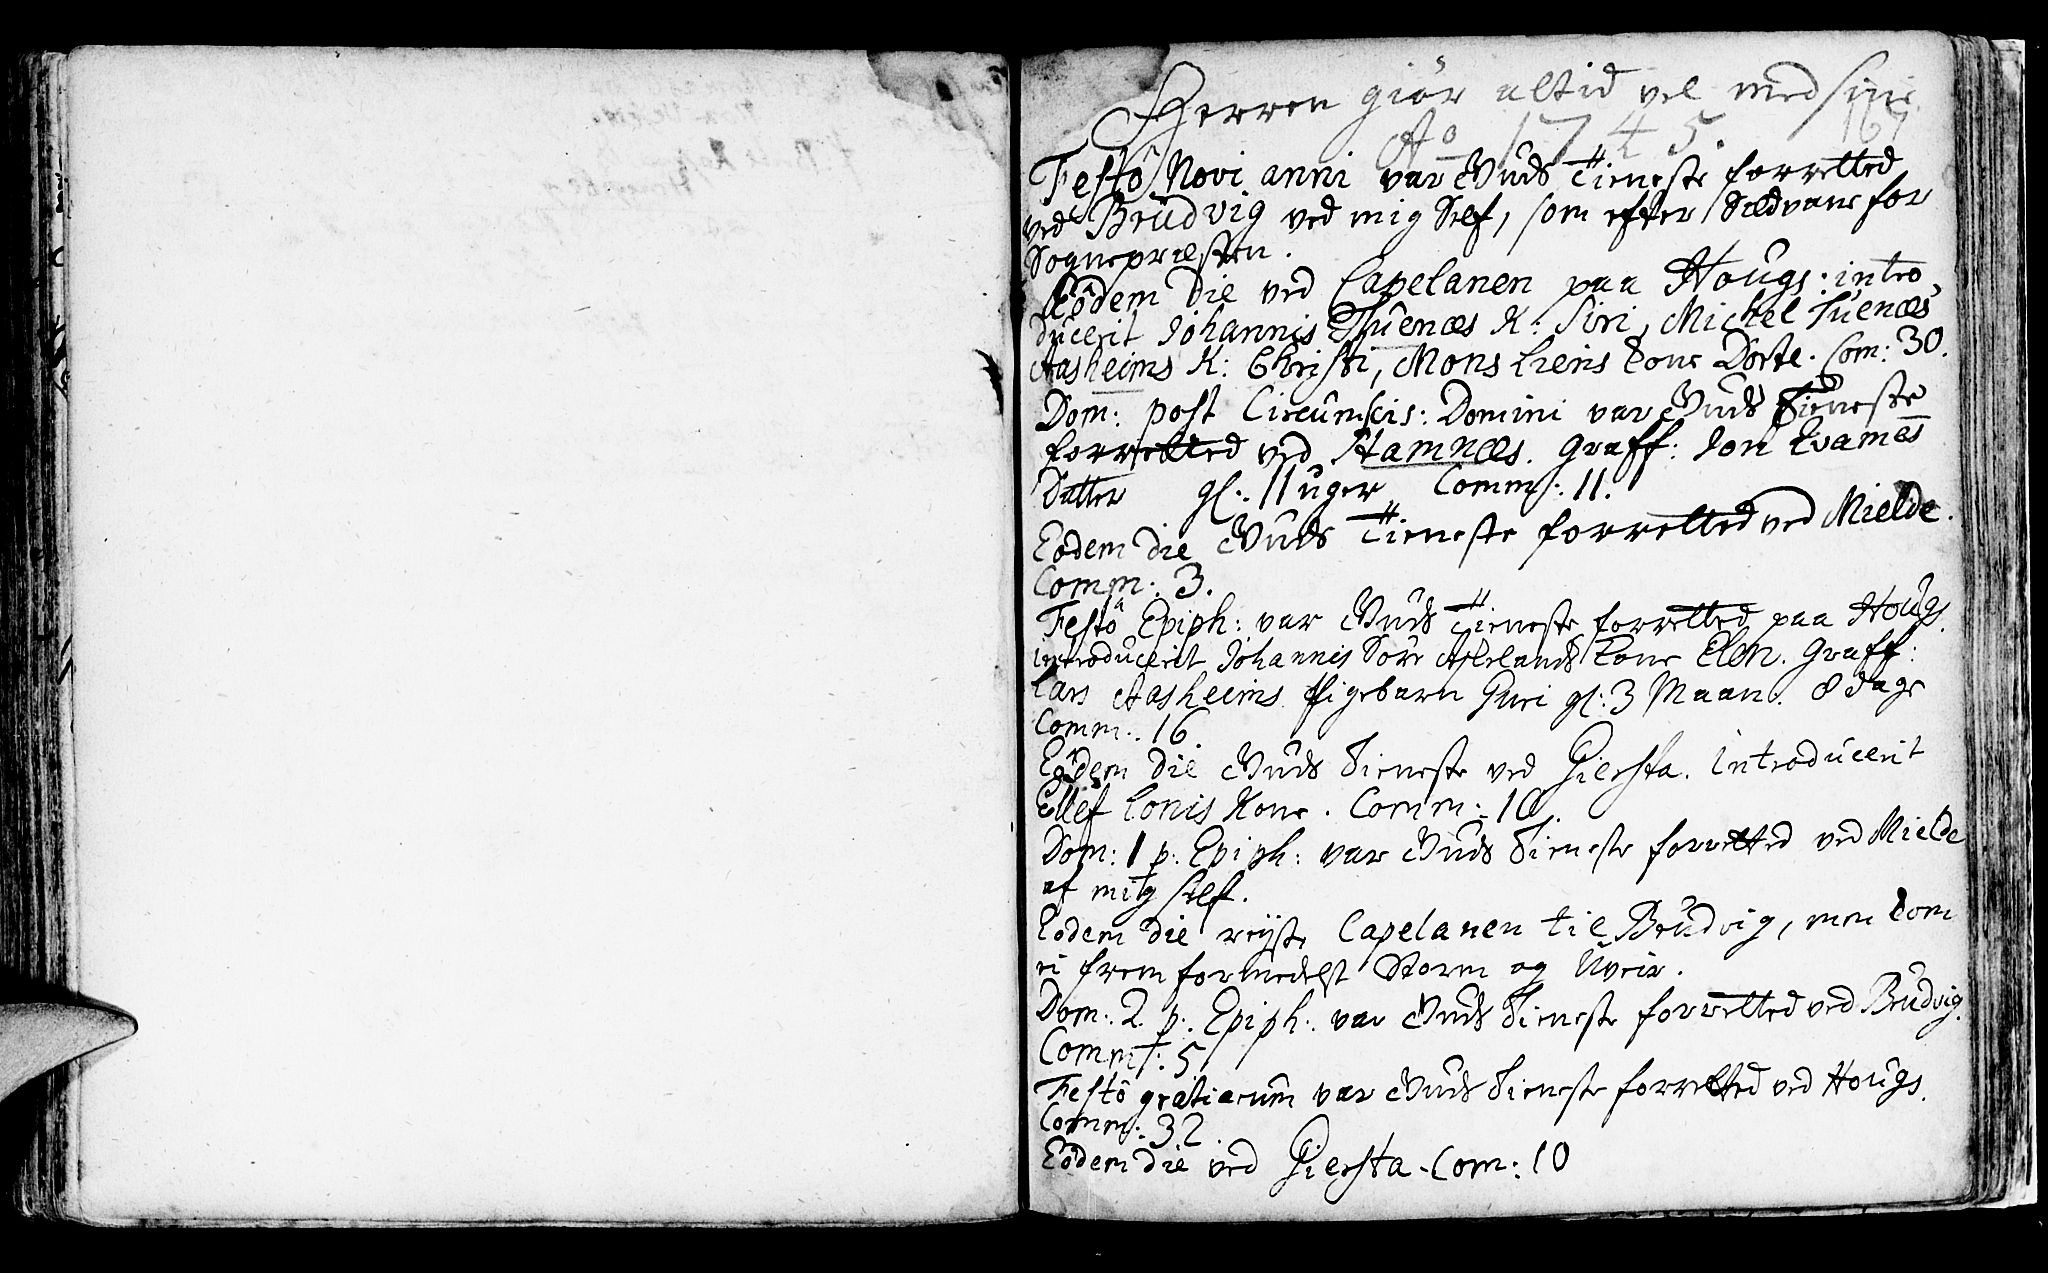 Herren giör altid vel med sine
167
Ao 1745.
Festo Novi anni var Guds Tieneste forretted
ved Brudvig ved mig Self, som efter Sædvane for
Sognepræsten.
Eodem Die ved Capelanen paa Hougs: intro
ducerit Johannis Thuenæs K: Siri, Michel Tuenæs
Aasheims K: Christi, Mons Liens Kone Dorte. Com: 30.
Dom: post Circumscis: Domini var Guds Tieneste
forretted ved Stamnæs. Graff: Jon Kvamès
Datter gl: 11 uger Comm: 11.
Eodem die Guds Tieneste forretted ved Mielde.
Comm: 3.
Festo Epiph: var Guds Tieneste forretted paa Hougs.
introducerit Johannis Sore Kone Elen. Graff:
Lars Aasheims Pigebarn Guri gl: 3 Maan: 8 dage
Comm: 16
Eodem Die Guds Tieneste ved Giersta. Introducerit
Ellef Lonis Kone. Comm: 10.
Dom: 1 p: Epiph: var Guds Tieneste forretted ved Mielde
af mig self.
Eodem die reyste Capelanen til Brudvig, men kom
ei frem formedelst Storm og Uveir.
Dom: 2 p: Epiph: var Guds Tieneste forretted ved Brudvig.
Comm: 5
Festo gratiarum var Guds Tieneste forretted ved Hougs.
Comm: 32
Eodem die ved Giersta. Com: 10